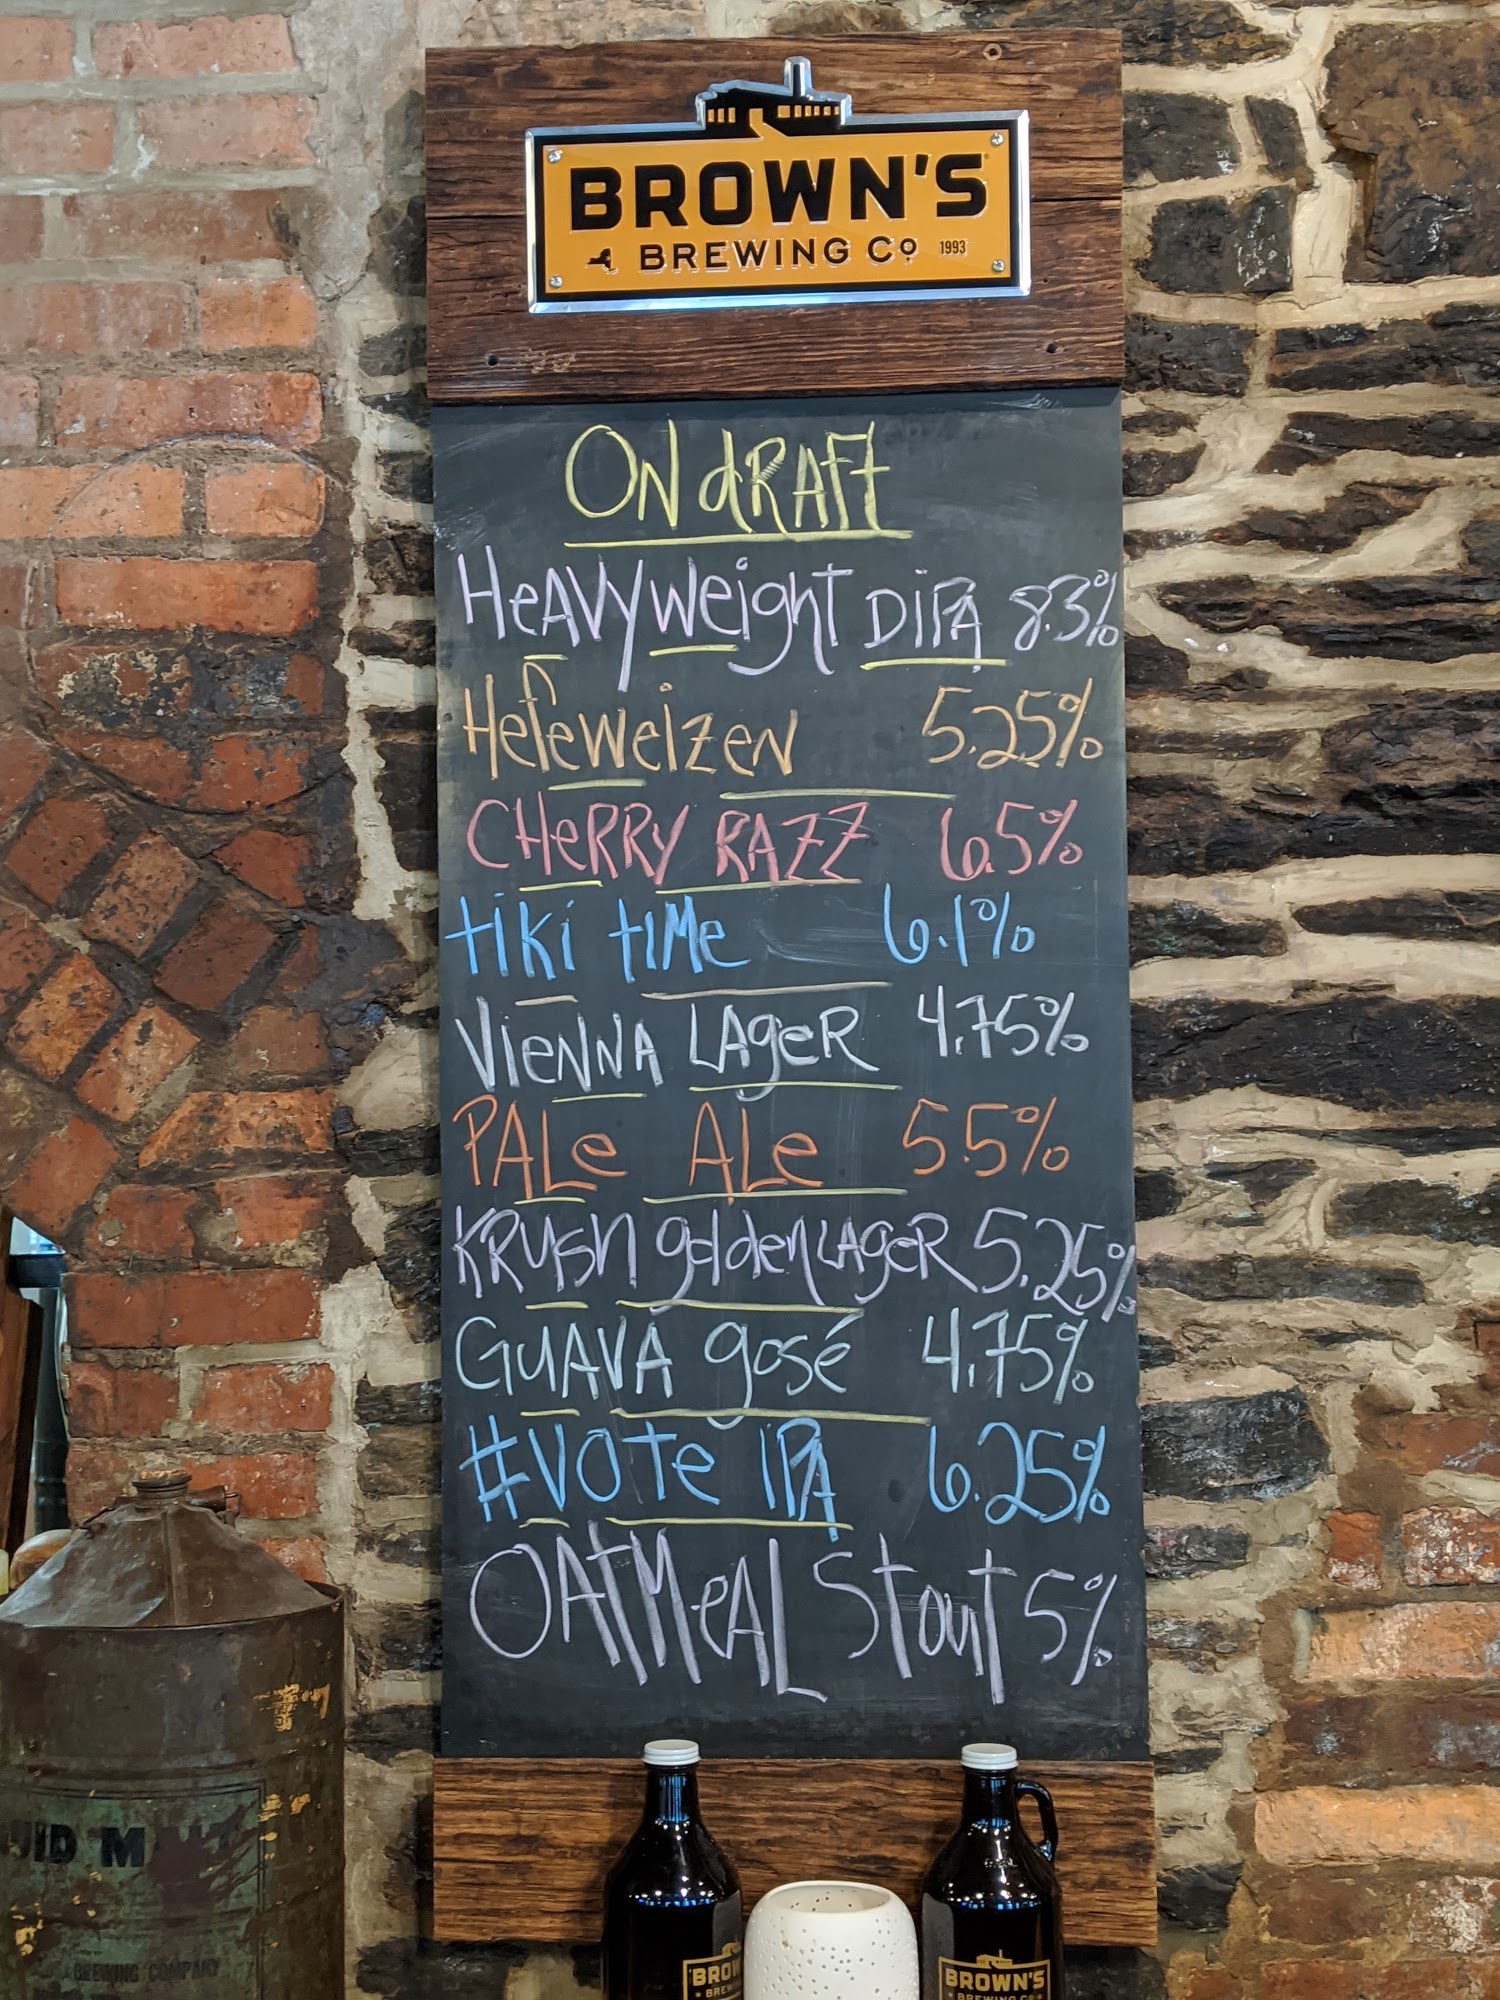 BROWN'S
BREWING Co 1993
ON dRAFt
HeAVyweight DiPA 8.3%
Hefeweizen 5.25%
CHeRRy RAZZ 6.5%
tiki tiMe 6.1%
VieNNA LAgeR 4.75%
PALe ALe 5.5%
KRusH goldeN LAgeR 5.25%
GuAVA gosé 4.75%
#VOte IPA 6.25%
OAtMeAL Stout 5%
BREWING COMPANY
BROW
BREWIN
BROWN'S
BREWING Co